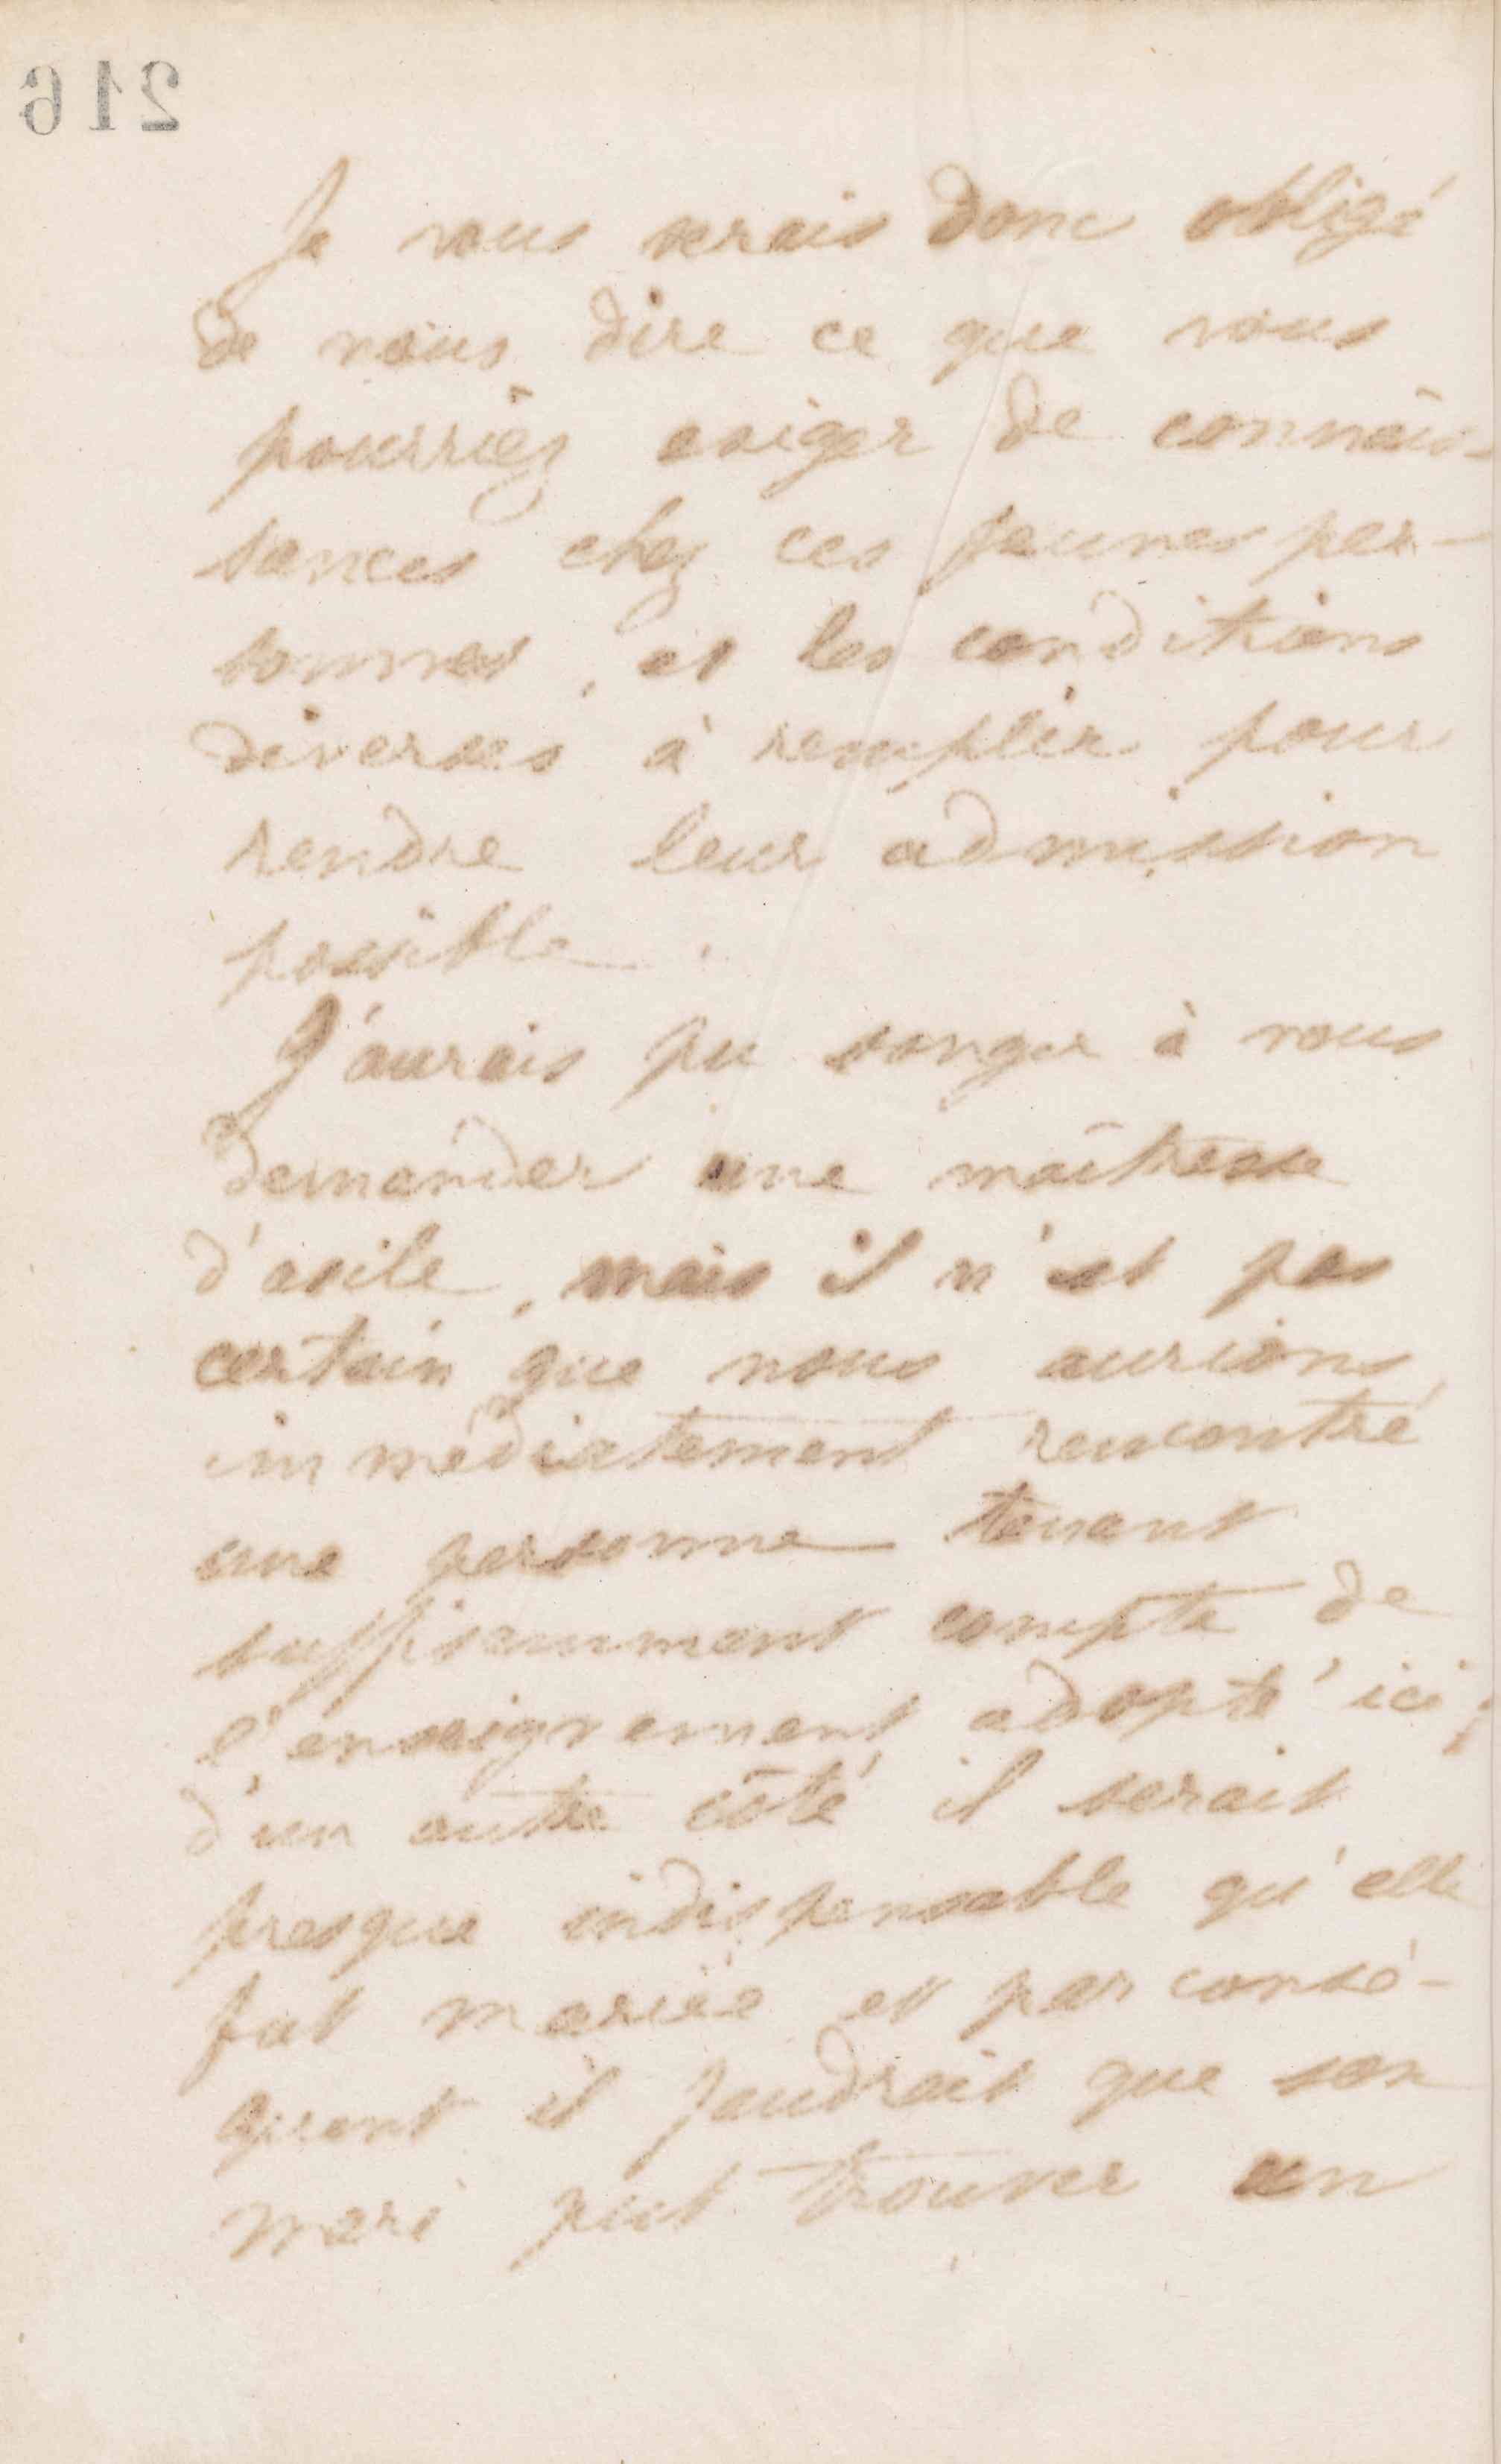 216
Je vous serais donc obligé
de nous dire ce que vous
pourriez exiger de connais-
sances chez ces jeunes per-
sonnes, et les conditions
diverses à remplir pour
rendre leur admission
possible.
J'aurais pu songer à vous
demander une maîtresse
d'asile, mais il n'est pas
certain que nous aurions
immédiatement rencontré
une personne tenant
suffisamment compte de
l'enseignement adopté ici;
d'un autre côté il serait
presque indispensable qu'elle
fut mariée et par consé-
quent il faudrait que son
mari put trouver un